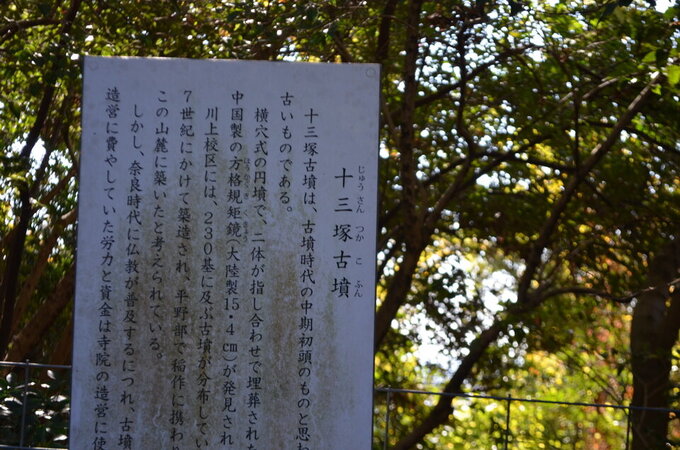 十三塚古墳
じゅうさんつかこふん
十三塚古墳は、古墳時代の中期初頭のものと思わ
古いものである。
横穴式の円墳で、二体が指し合わせで埋葬された
中国製の方格規矩鏡(大陸製15・4cm)が発見され
ほうかくきくきょう
川上校区には、230基に及ぶ古墳が分布してい
7世紀にかけて築造され、平野部で稲作に携わ
この山麓に築いたと考えられている。
しかし、奈良時代に仏教が普及するにつれ、古墳
造営に費やしていた労力と資金は寺院の造営に使